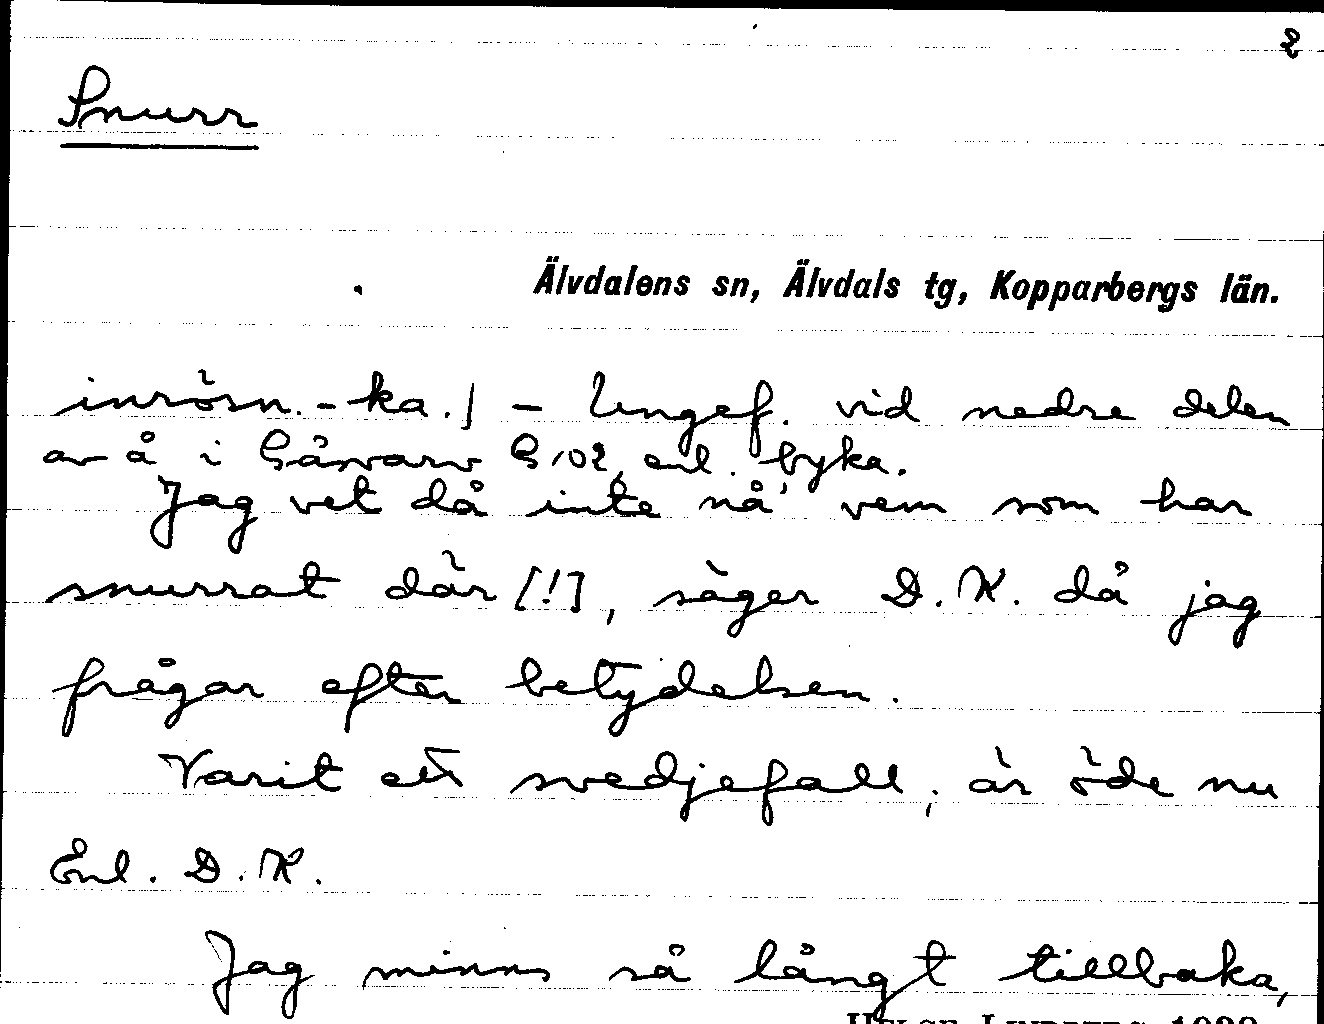 2
Snurr
Älvdalens sn, Älvdals tg, Kopparbergs län.
inrösn.-ka.] - Ungef. vid nedre delen
av å i Gåsvarv G 102, enl. byka.
Jag vet då inte nå' vem som har
snurrat där [!], säger D.K. då jag
frågar efter betydelsen.
Varit ett svedjefall, är öde nu
Enl. D.K.
Jag minns så långt tillbaka,